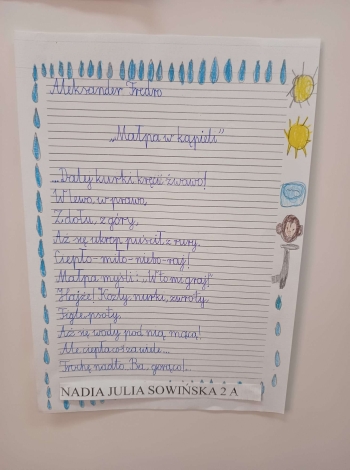 Aleksander Fredro
„Małpa w kąpieli"
...Dalej kurki kręcić żwawo!
W lewo, w prawo,
Z dołu, z góry,
Aż się ukrop puścił z rury.
Ciepło-miło-niebo-raj!
Małpa myśli: „W to mi graj!"
Hajże! Kozły, nurki, zwroty,
Figle, psoty,
Aż się wody pod nią mącą!
Ale ciepła coś za wiele...
Trochę nadto... Ba, gorąco!...
NADIA JULIA SOWIŃSKA 2 A